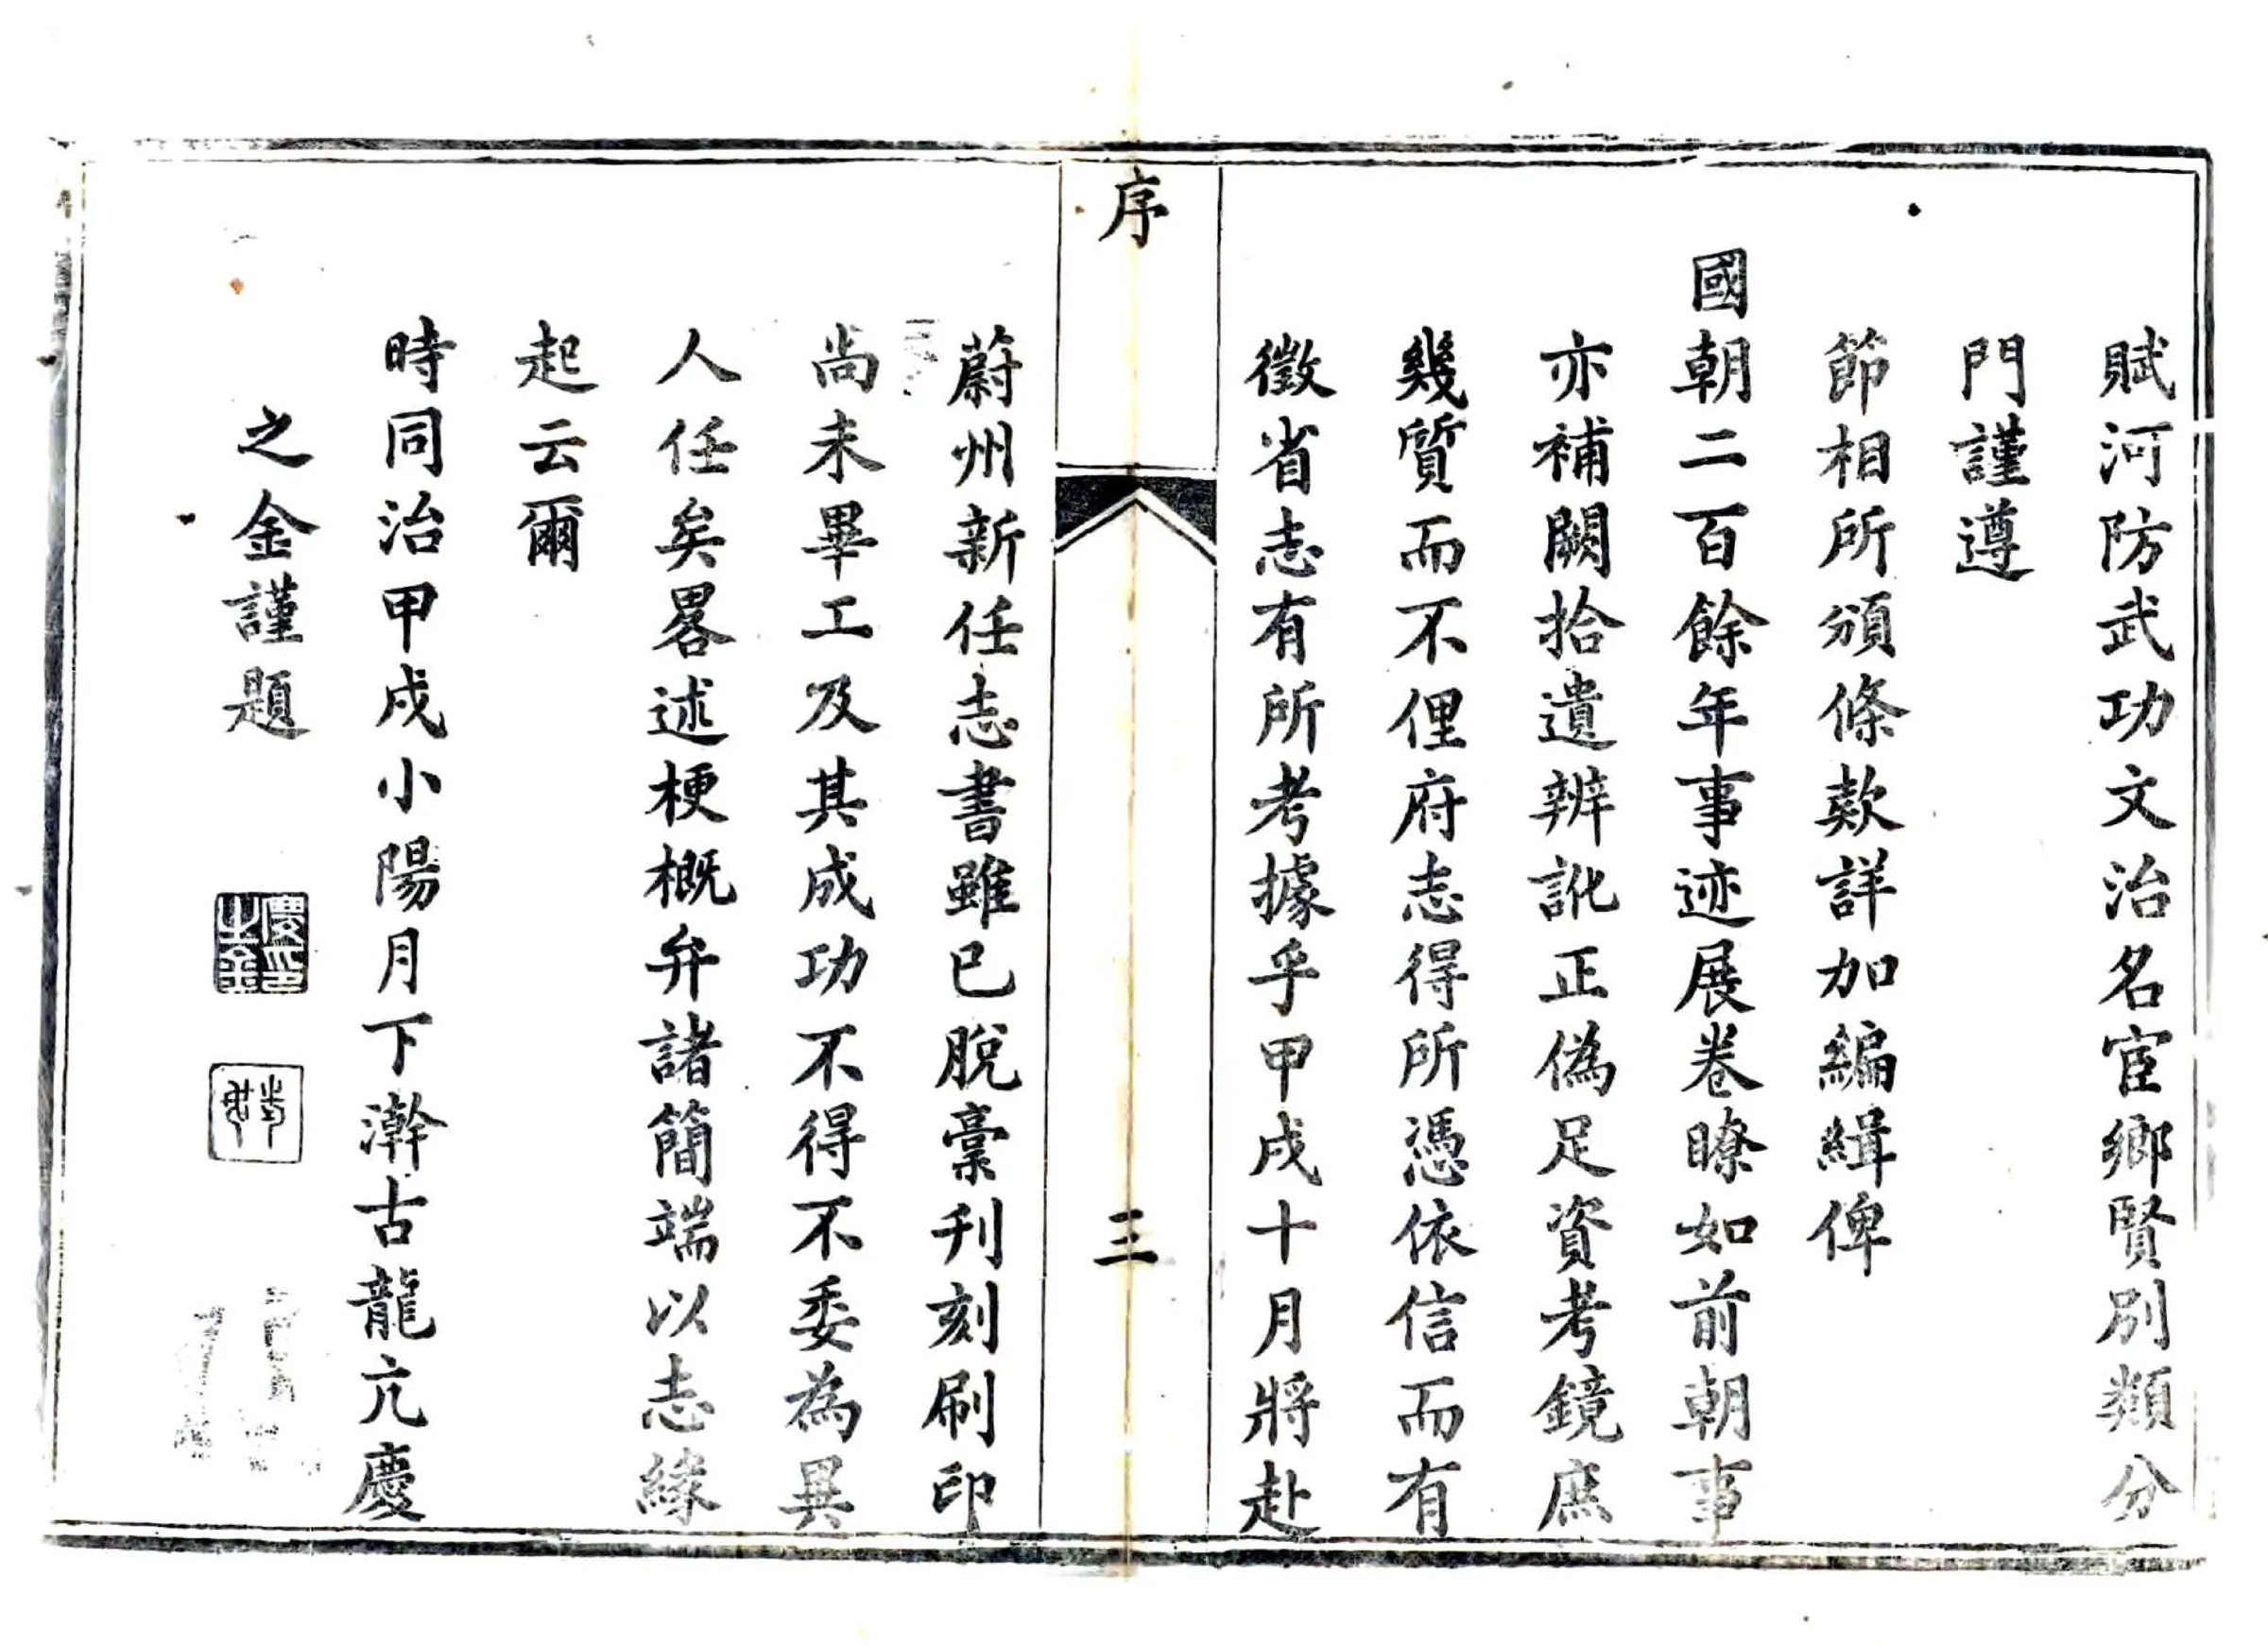 賦河防武功文治名宦鄉賢別類分
門謹遵
節相所頒條欵詳加編緝俾
國朝二百餘年事迹展卷瞭如前朝事
亦補闕拾遺辨訛正偽足資考鏡庶
幾質而不俚府志得所憑依信而有
徵省志有所考據乎甲戌十月將赴
序
三
蔚州新任志書雖已脫稾刋刻刷印
尚未畢工及其成功不得不委為異
人任矣畧述梗概弁諸簡端以志緣
起云爾
時同治甲戌小陽月下澣古龍亢慶
之金謹題
慶之金印